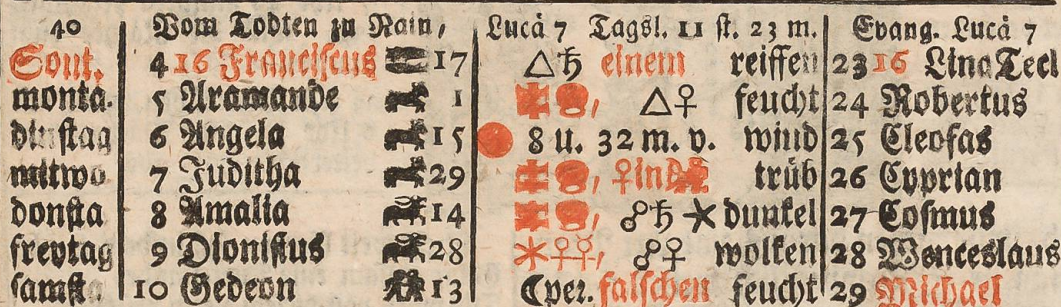 40 Vom Todten zu Nain, Lucä 7 Tagsl. 11 st. 23 m. Evang. Lucä 7
Sont. 4 16 Franciscus 17 △♄ einem reiffen 23 16 Lina Tecl
monta. 5 Aramande 1 △♀ feucht 24 Robertus
dinstag 6 Angela 15 8 u. 32 m. v. wind 25 Cleofas
mitwo 7 Juditha 29 ♀in trüb 26 Cyprian
donsta 8 Amalia 14 ☍♄ ✶ dunkel 27 Cosmus
freytag 9 Dionisius 28 ✶♀☿, ☍♀ wolken 28 Wenceslaus
samsta 10 Gedeon 13 ☾per. falschen feucht 29 Michael